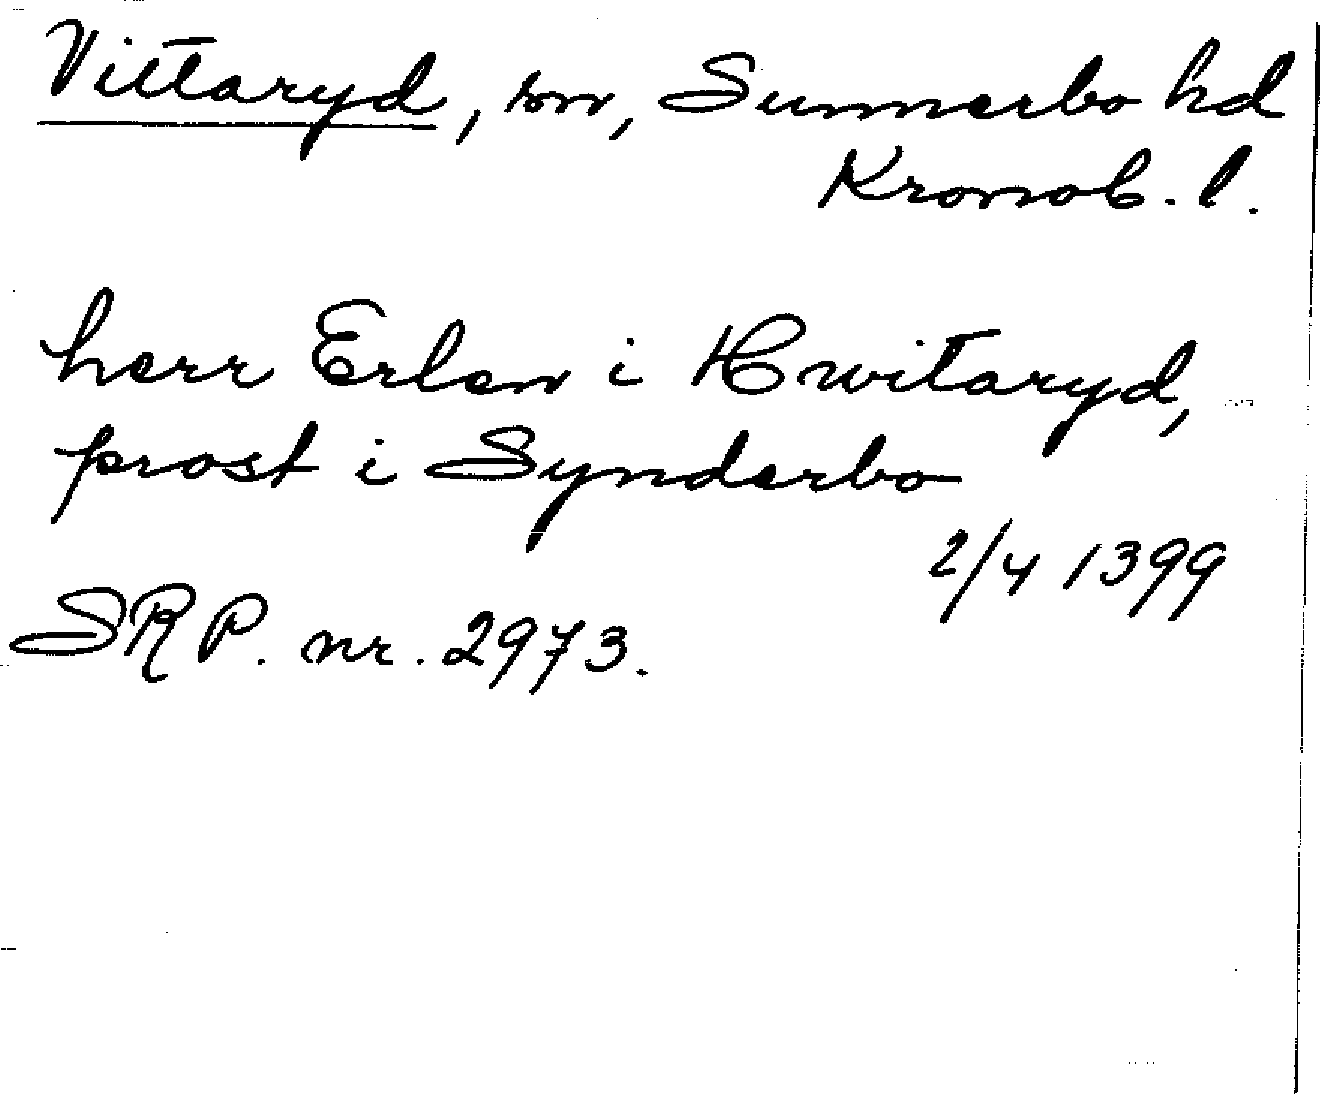 Vittaryd, sn, Sunnerbo hd
Kronob. l.
herr Erlen i Hwitaryd,
prost i Synderbo
2/4 1399
SRP. nr. 2973.